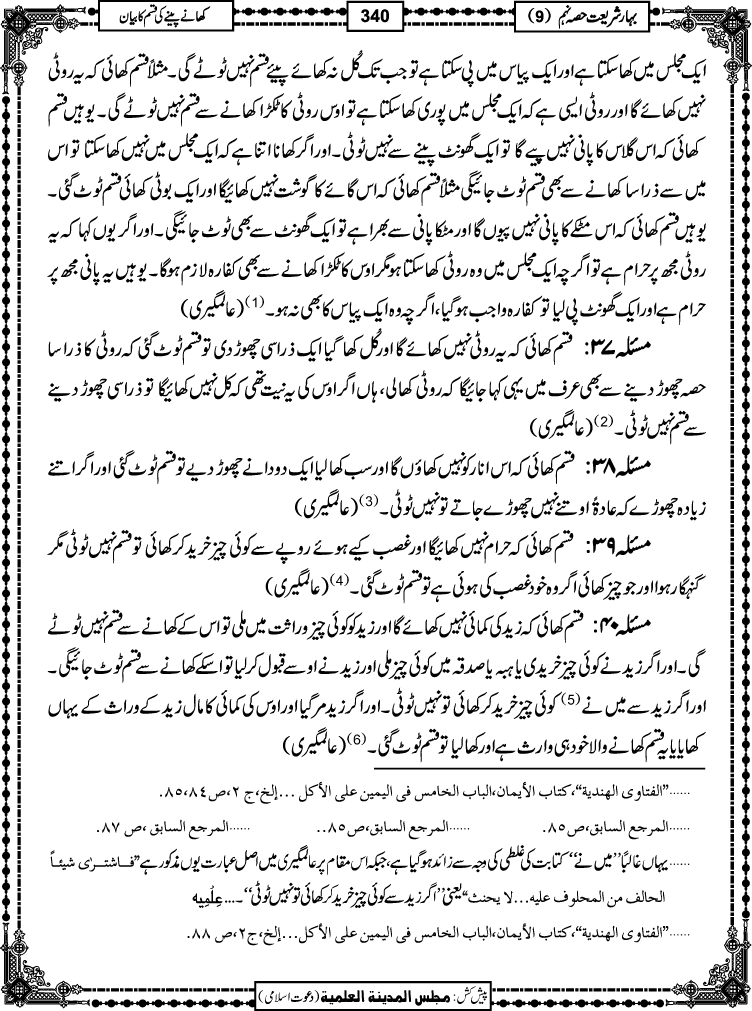 بہارِ شریعت حصہ نہم (9)
340
کھانے پینے کی قسم کا بیان
ایک مجلس میں کھا سکتا ہے اور ایک پیاس میں پی سکتا ہے تو جب تک کُل نہ کھائے پیئے قسم نہیں ٹوٹے گی۔ مثلاً قسم کھائی کہ یہ روٹی
نہیں کھائے گا اور روٹی ایسی ہے کہ ایک مجلس میں پوری کھا سکتا ہے تو اوس روٹی کا ٹکڑا کھانے سے قسم نہیں ٹوٹے گی۔ یوہیں قسم
کھائی کہ اس گلاس کا پانی نہیں پیے گا تو ایک گھونٹ پینے سے نہیں ٹوٹی۔ اور اگر کھانا اتنا ہے کہ ایک مجلس میں نہیں کھا سکتا تو اس
میں سے ذرا سا کھانے سے بھی قسم ٹوٹ جائیگی مثلاً قسم کھائی کہ اس گائے کا گوشت نہیں کھائیگا اور ایک بوٹی کھائی قسم ٹوٹ گئی۔
یوہیں قسم کھائی کہ اس مٹکے کا پانی نہیں پیوں گا اور مٹکا پانی سے بھرا ہے تو ایک گھونٹ سے بھی ٹوٹ جائیگی۔ اور اگر یوں کہا کہ یہ
روٹی مجھ پر حرام ہے تو اگرچہ ایک مجلس میں وہ روٹی کھا سکتا ہو مگر اوس کا ٹکڑا کھانے سے بھی کفارہ لازم ہوگا۔ یوہیں یہ پانی مجھ پر
حرام ہے اور ایک گھونٹ پی لیا تو کفارہ واجب ہوگیا، اگرچہ وہ ایک پیاس کا بھی نہ ہو۔ (1) (عالمگیری)
مسئلہ ۳۷: قسم کھائی کہ یہ روٹی نہیں کھائے گا اور کُل کھا گیا ایک ذرا سی چھوڑ دی تو قسم ٹوٹ گئی کہ روٹی کا ذرا سا
حصہ چھوڑ دینے سے بھی عرف میں یہی کہا جائیگا کہ روٹی کھالی، ہاں اگر اوس کی یہ نیت تھی کہ کل نہیں کھائیگا تو ذرا سی چھوڑ دینے
سے قسم نہیں ٹوٹی۔ (2) (عالمگیری)
مسئلہ ۳۸: قسم کھائی کہ اس انار کو نہیں کھاؤں گا اور سب کھا لیا ایک دو دانے چھوڑ دیے تو قسم ٹوٹ گئی اور اگر اتنے
زیادہ چھوڑے کہ عادۃً اوتنے نہیں چھوڑے جاتے تو نہیں ٹوٹی۔ (3) (عالمگیری)
مسئلہ ۳۹: قسم کھائی کہ حرام نہیں کھائیگا اور غصب کیے ہوئے روپے سے کوئی چیز خرید کر کھائی تو قسم نہیں ٹوٹی مگر
گنہگار ہوا اور جو چیز کھائی اگر وہ خود غصب کی ہوئی ہے تو قسم ٹوٹ گئی۔ (4) (عالمگیری)
مسئلہ ۴۰: قسم کھائی کہ زید کی کمائی نہیں کھائے گا اور زید کو کوئی چیز وراثت میں ملی تو اس کے کھانے سے قسم نہیں ٹوٹے
گی۔ اور اگر زید نے کوئی چیز خریدی یا ہبہ یا صدقہ میں کوئی چیز ملی اور زید نے اوسے قبول کرلیا تو اسکے کھانے سے قسم ٹوٹ جائیگی۔
اور اگر زید سے میں نے (5) کوئی چیز خرید کر کھائی تو نہیں ٹوٹی۔ اور اگر زید مر گیا اور اوس کی کمائی کا مال زید کے وراث کے یہاں
کھایا یا یہ قسم کھانے والا خود ہی وارث ہے اور کھا لیا تو قسم ٹوٹ گئی۔ (6) (عالمگیری)
......"الفتاوی الھندیة"، کتاب الأیمان، الباب الخامس فی الیمین علی الأکل ...إلخ، ج ۲، ص ۸۴، ۸۵.
......المرجع السابق، ص ۸۵. ......المرجع السابق، ص ۸۵.. ......المرجع السابق، ص ۸۷.
......یہاں غالباً "میں نے" کتابت کی غلطی کی وجہ سے زائد ہوگیا ہے، جبکہ اس مقام پر عالمگیری میں اصل عبارت یوں مذکور ہے "فاشتری شیئاً
الحالف من المحلوف علیه...لا یحنث" یعنی "اگر زید سے کوئی چیز خرید کر کھائی تو نہیں ٹوٹی"۔...عِلْمِیه
......"الفتاوی الھندیة"، کتاب الأیمان، الباب الخامس فی الیمین علی الأکل...إلخ، ج۲، ص ۸۸.
پیش کش: مجلس المدینة العلمیة (دعوت اسلامی)